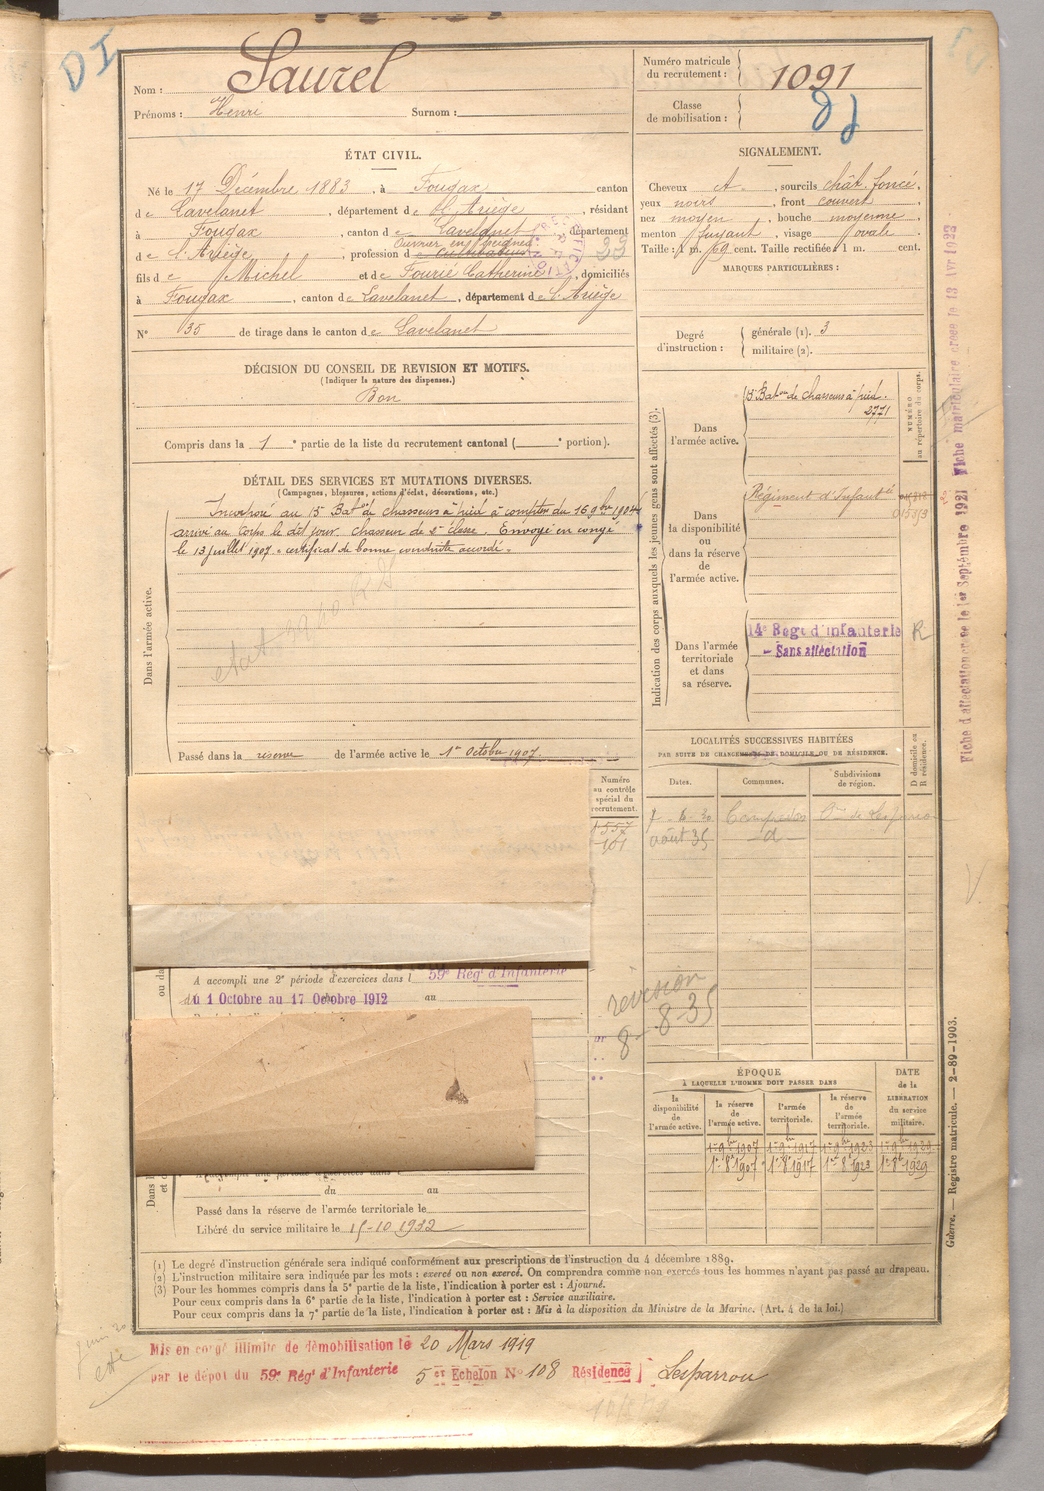 Nom : Saurel
Prénoms : Henri Surnom :
Numéro matricule
du recrutement : 1091
Classe
de mobilisation :
ÉTAT CIVIL.
Né le 17 Décembre 1883, à Fougax canton
de Lavelanet, département de l'Ariège, résidant
à Fougax, canton de Lavelanet département
de l'Ariège, profession de cultivateur
Ouvrier en peignes
33
fils de Michel et de Fourié Catherine, domiciliés
à Fougax, canton de Lavelanet, département de l'Ariège
N° 35 de tirage dans le canton de Lavelanet
SIGNALEMENT.
Cheveux , sourcils chât. foncé,
yeux noirs, front couvert
nez moyen, bouche moyenne
menton fuyant, visage ovale.
Taille : 1 m. 69 cent. Taille rectifiée 1 m. cent.
MARQUES PARTICULIÈRES :
Degré
d'instruction :
générale (1). 3
militaire (2).
DÉCISION DU CONSEIL DE REVISION ET MOTIFS.
(Indiquer la nature des dispenses.)
Bon
Compris dans la 1e partie de la liste du recrutement cantonal ( e portion).
DÉTAIL DES SERVICES ET MUTATIONS DIVERSES.
(Campagnes, blessures, actions d'éclat, décorations, etc.)
Dans l'armée active.
Incorporé au 15e Baton de chasseurs à pied à compter du 16 9bre 1904
arrivé au Corps le dit jour. Chasseur de 2e classe. Envoyé en congé
le 13 Juillet 1907. certificat de bonne conduite accordé.
Passé dans la réserve de l'armée active le 1er Octobre 1907.
Indication des corps auxquels les jeunes gens sont affectés (3).
Dans
l'armée active.
15e Baton de Chasseurs à pied.
2771
NUMÉRO
au répertoire du corps.
Dans
la disponibilité
ou
dans la réserve
de
l'armée active.
Régiment d'Infantie
Dans l'armée
territoriale
et dans
sa réserve.
14e Regt d'infanterie R
- Sans affectation
LOCALITÉS SUCCESSIVES HABITÉES
PAR SUITE DE CHANGEMENTS DE DOMICILE OU DE RÉSIDENCE.
Dates.
Communes.
Subdivisions
de région.
D domicile ou
R résidence.
août 35 -d-
Numéro
au contrôle
spécial du
recrutement.
1557
101
révision
8-8-35
A accompli une 2e période d'exercices dans l 59e Régt d'Infanterie
du 1 Octobre au 17 Octobre 1912 au
ÉPOQUE
À LAQUELLE L'HOMME DOIT PASSER DANS
la
disponibilité
de
l'armée active.
la réserve
de
l'armée active.
l'armée
territoriale.
la réserve
de
l'armée
territoriale.
DATE
de la
LIBÉRATION
du service
militaire.
1er 9bre 1907 1er 9bre 1917 1er 9bre 1923 1er 9bre 1929
1er 8bre 1907 1er 8bre 1917 1er 8bre 1923 1er 8bre 1929
du au
Passé dans la réserve de l'armée territoriale le
Libéré du service militaire le 15-10 1932
(1) Le degré d'instruction générale sera indiqué conformément aux prescriptions de l'instruction du 4 décembre 1889.
(2) L'instruction militaire sera indiquée par les mots : exercé ou non exercé. On comprendra comme non exercés tous les hommes n'ayant pas passé au drapeau.
(3) Pour les hommes compris dans la 5e partie de la liste, l'indication à porter est : Ajourné.
Pour ceux compris dans la 6e partie de la liste, l'indication à porter est : Service auxiliaire.
Pour ceux compris dans la 7e partie de la liste, l'indication à porter est : Mis à la disposition du Ministre de la Marine. (Art. 4 de la loi.)
Mis en congé illimité de démobilisation le 20 Mars 1919
par le dépôt du 59e Régt d'Infanterie 5er Echelon N° 108 Résidence Lesparrou
Fiche d'affectation créée le 1er Septembre 1921 Fiche matriculaire créée le 13 Avr 1922
Guerre. — Registre matricule. — 2-89-1903.